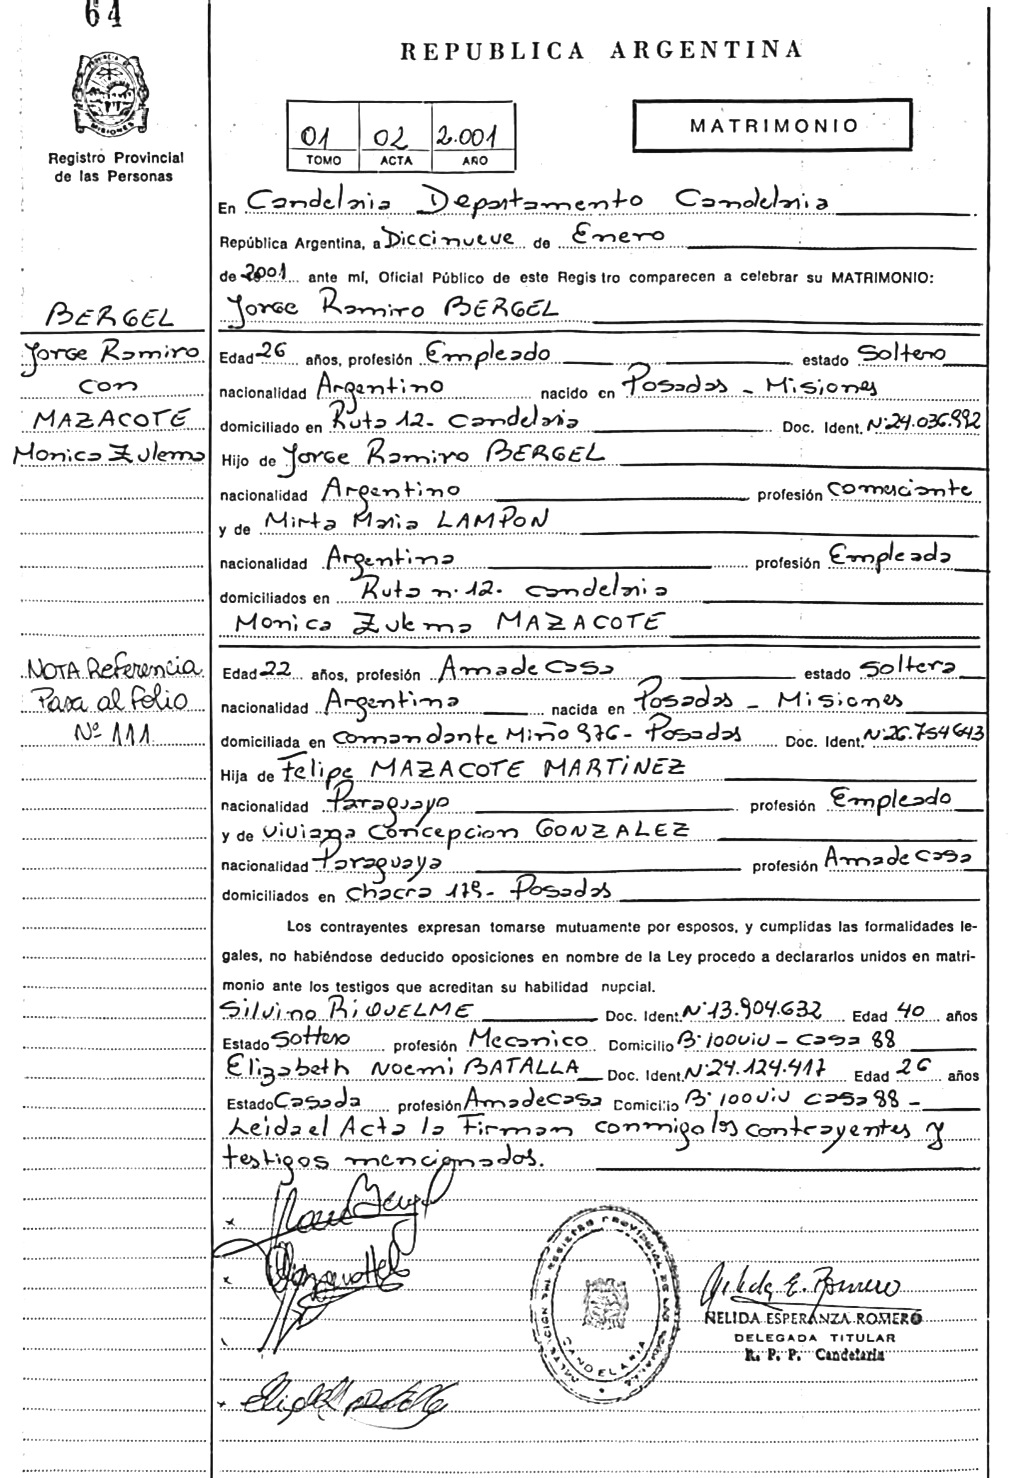 64
REPUBLICA ARGENTINA
PROVINCIA DE MISIONES
Registro Provincial
de las Personas
01 02 2.001
TOMO ACTA AÑO
MATRIMONIO
En Candelaria Departamento Candelaria
República Argentina, a Diecinueve de Enero
de 2001 ante mí, Oficial Público de este Registro comparecen a celebrar su MATRIMONIO:
Jorge Ramiro BERGEL
BERGEL
Jorge Ramiro
con
MAZACOTE
Monica Zulema
Edad 26 años, profesión Empleado estado Soltero
nacionalidad Argentino nacido en Posadas - Misiones
domiciliado en Ruta 12- Candelaria Doc. Ident. Nº24.036.992
Hijo de Jorge Ramiro BERGEL
nacionalidad Argentino profesión comerciante
y de Mirta Maria LAMPON
nacionalidad Argentina profesión Empleada
domiciliados en Ruta n.12- candelaria
Monica Zulema MAZACOTE
NOTA Referencia
Pasa al Folio
Nº 111
Edad 22 años, profesión Ama de Casa estado Soltera
nacionalidad Argentina nacida en Posadas - Misiones
domiciliada en Comandante Miño 976- Posadas Doc. Ident. Nº26.754643
Hija de Felipe MAZACOTE MARTiNEZ
nacionalidad Paraguayo profesión Empleado
y de Viviana Concepcion GONZALEZ
nacionalidad Paraguaya profesión Ama de casa
domiciliados en chacra 179- Posadas
Los contrayentes expresan tomarse mutuamente por esposos, y cumplidas las formalidades le-
gales, no habiéndose deducido oposiciones en nombre de la Ley procedo a declararlos unidos en matri-
monio ante los testigos que acreditan su habilidad nupcial.
Silvino RiQUELME Doc. Ident. Nº13.904.632 Edad 40 años
Estado Soltero profesión Mecanico Domicilio Bº100viv - Casa 88
Elizabeth Noemi BATALLA Doc. Ident. Nº24.124.417 Edad 26 años
Estado Casada profesión Ama de casa Domicilio Bº100viv casa 88 -
Leida el Acta la Firman conmigo los contrayentes y
testigos mencionados.
CANDELARIA
Nelida E. Romero
NELIDA ESPERANZA ROMERO
DELEGADA TITULAR
R. P. P. Candelaria